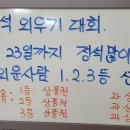 석 외우기 대회.
23일까지 정석많이
외운사람 1.2.3등 선
1등: 상품권
2등: 상품권
3등: 상품권